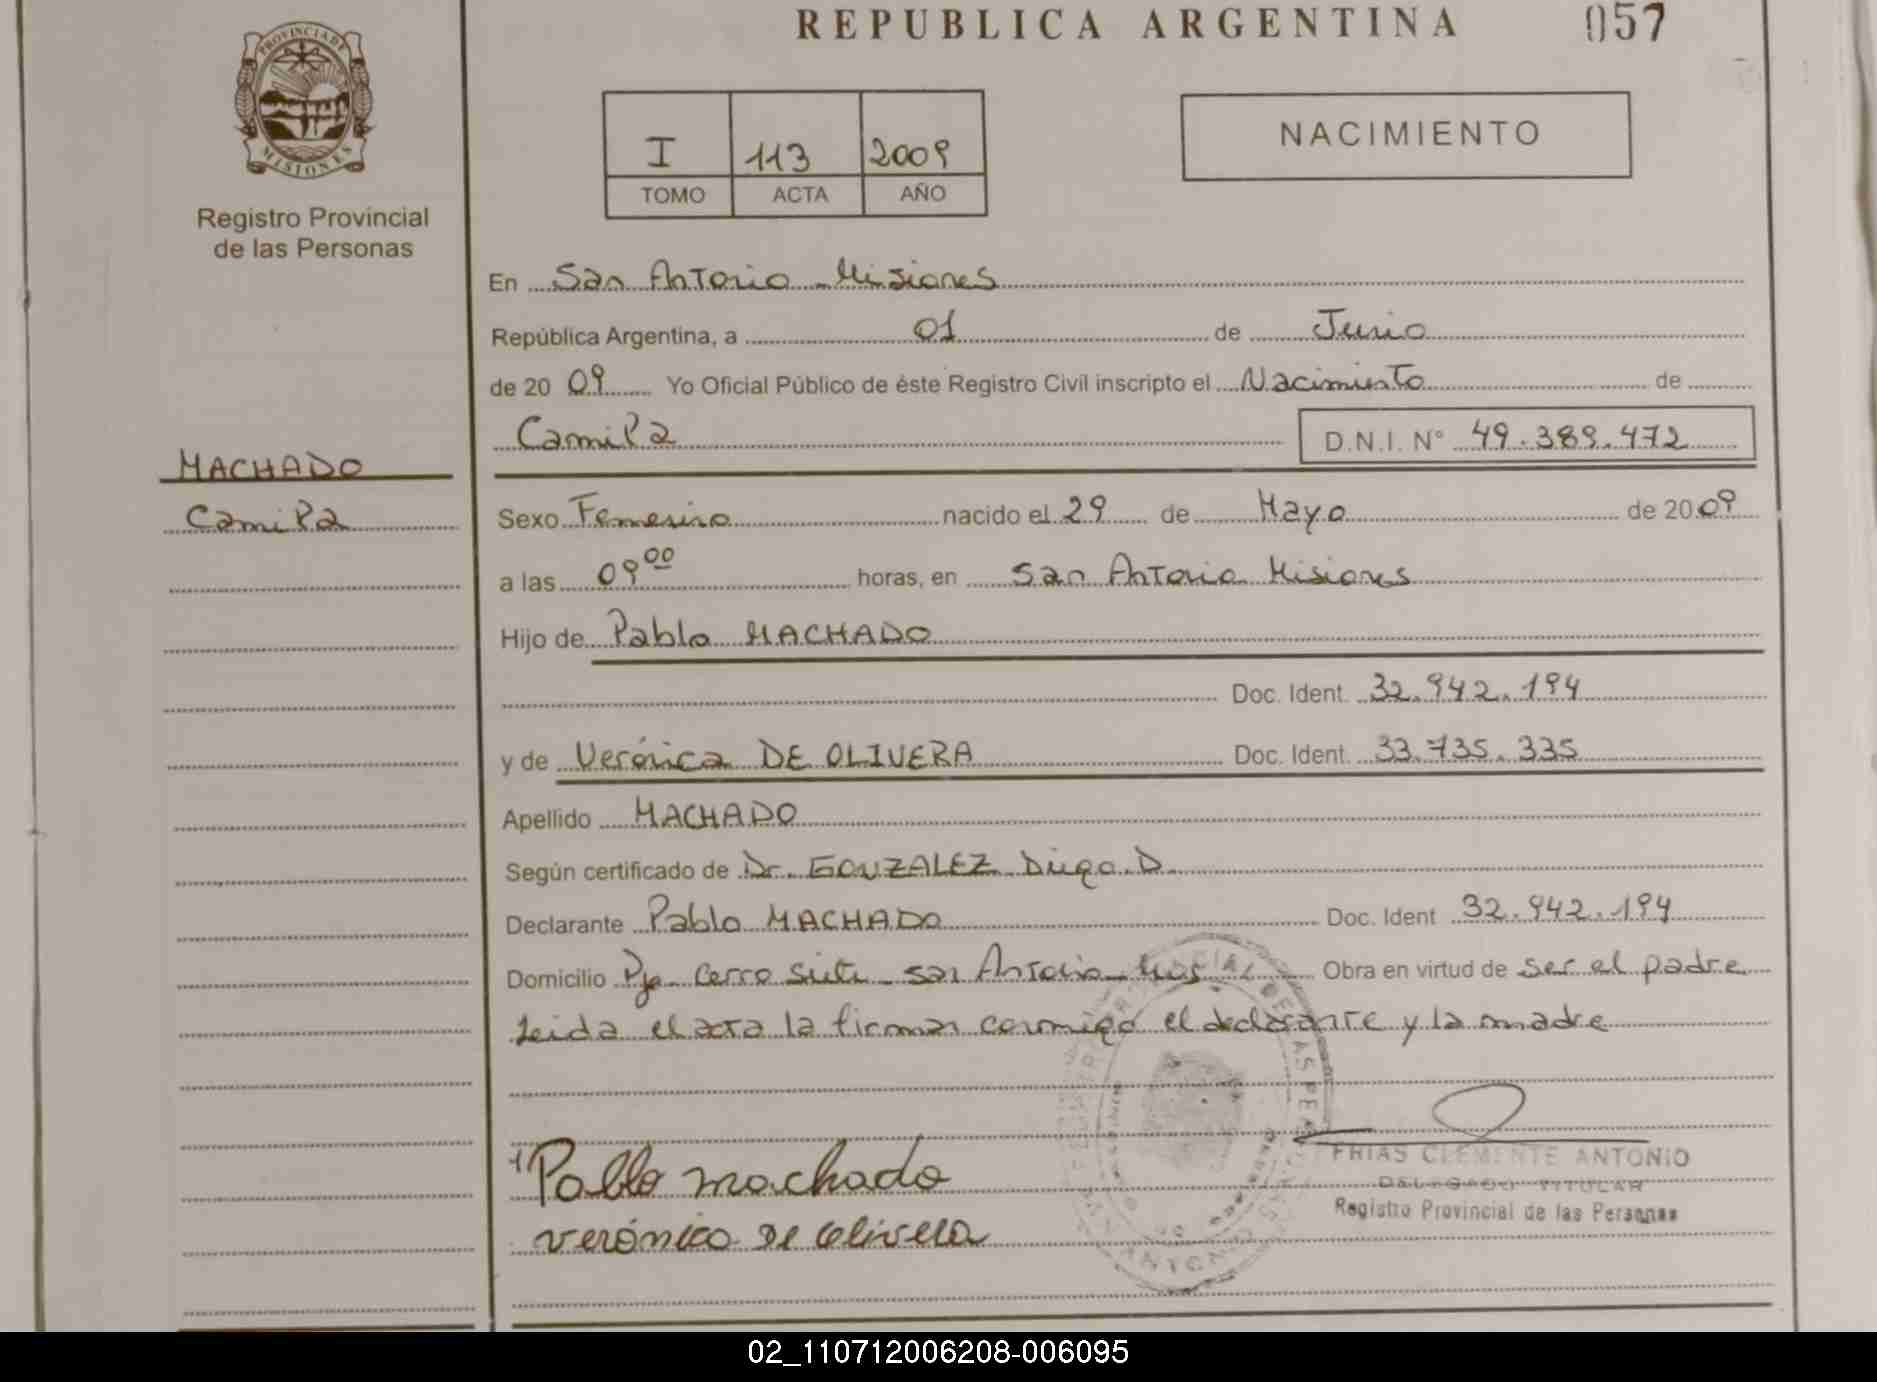 REPUBLICA ARGENTINA
057
PROVINCIA DE
MISIONES
Registro Provincial
de las Personas
I 113 2009
TOMO ACTA AÑO
NACIMIENTO
En San Antonio - Misiones
República Argentina, a 01 de Junio
de 20 09 Yo Oficial Público de éste Registro Civil inscripto el Nacimiento de
Camila D.N.I. Nº 49.389.472
MACHADO
Camila
Sexo Femenino nacido el 29 de Mayo de 20 09
a las 09 00 horas, en San Antonio Misiones
Hijo de Pablo MACHADO
Doc. Ident. 32.942.194
y de Verónica DE OLIVERA Doc. Ident. 33.735.335
Apellido MACHADO
Según certificado de Dr. GONZALEZ Diego D
Declarante Pablo MACHADO Doc. Ident 32.942.194
Domicilio Pje Cerro Siete - San Antonio - Mns Obra en virtud de ser el padre
Leida el acta la firman conmigo el declarante y la madre
Pablo machado
verónica De Olivera
FRIAS CLEMENTE ANTONIO
DELEGADO TITULAR
Registro Provincial de las Personas
02_110712006208-006095